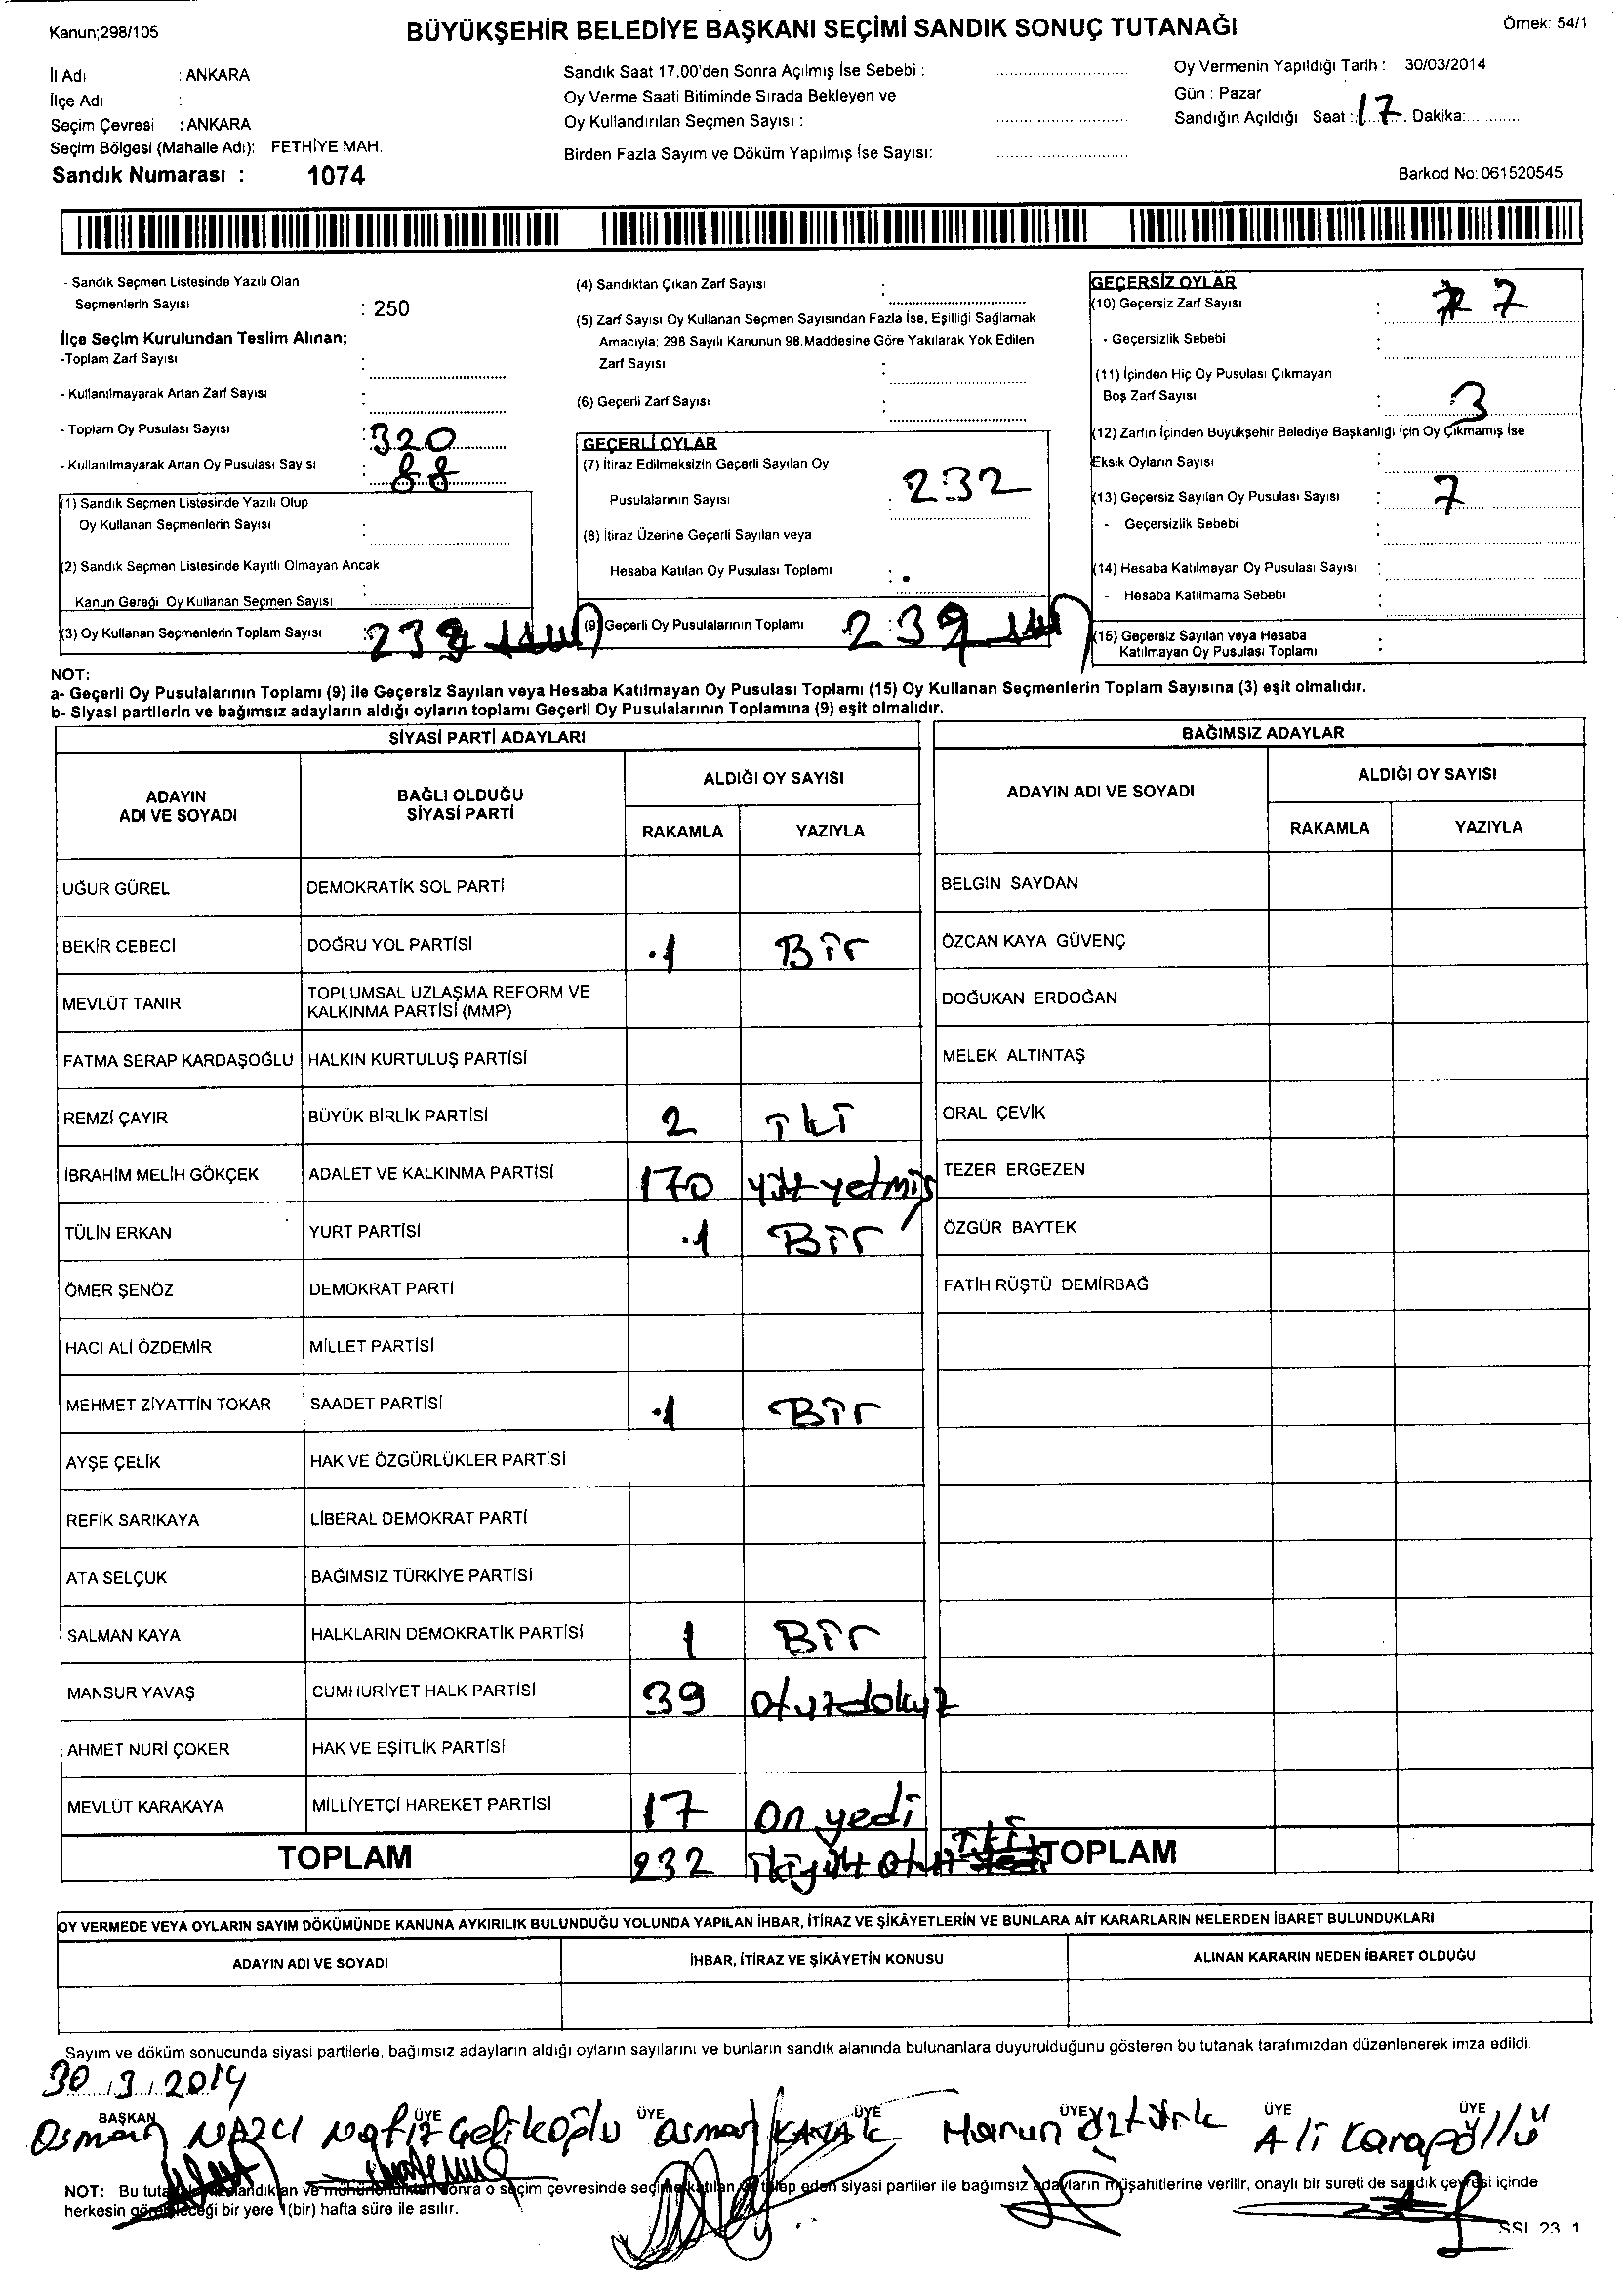 Kanun;298/105
BÜYÜKŞEHİR BELEDİYE BAŞKANI SEÇİMİ SANDIK SONUÇ TUTANAĞI
Örnek: 54/1
İl Adı : ANKARA
İlçe Adı :
Seçim Çevresi : ANKARA
Seçim Bölgesi (Mahalle Adı): FETHİYE MAH.
Sandık Numarası : 1074
Sandık Saat 17.00'den Sonra Açılmış İse Sebebi :
Oy Verme Saati Bitiminde Sırada Bekleyen ve
Oy Kullandırılan Seçmen Sayısı :
Birden Fazla Sayım ve Döküm Yapılmış İse Sayısı:
Oy Vermenin Yapıldığı Tarih : 30/03/2014
Gün : Pazar
Sandığın Açıldığı Saat : 17 Dakika:
Barkod No: 061520545
- Sandık Seçmen Listesinde Yazılı Olan
Seçmenlerin Sayısı : 250
İlçe Seçim Kurulundan Teslim Alınan;
-Toplam Zarf Sayısı :
- Kullanılmayarak Artan Zarf Sayısı :
- Toplam Oy Pusulası Sayısı : 320
- Kullanılmayarak Artan Oy Pusulası Sayısı : 88
(1) Sandık Seçmen Listesinde Yazılı Olup
Oy Kullanan Seçmenlerin Sayısı :
(2) Sandık Seçmen Listesinde Kayıtlı Olmayan Ancak
Kanun Gereği Oy Kullanan Seçmen Sayısı :
(3) Oy Kullanan Seçmenlerin Toplam Sayısı :
(4) Sandıktan Çıkan Zarf Sayısı :
(5) Zarf Sayısı Oy Kullanan Seçmen Sayısından Fazla İse, Eşitliği Sağlamak
Amacıyla; 298 Sayılı Kanunun 98.Maddesine Göre Yakılarak Yok Edilen
Zarf Sayısı :
(6) Geçerli Zarf Sayısı :
GEÇERLİ OYLAR
(7) İtiraz Edilmeksizin Geçerli Sayılan Oy
Pusulalarının Sayısı : 232
(8) İtiraz Üzerine Geçerli Sayılan veya
Hesaba Katılan Oy Pusulası Toplamı : .
(9) Geçerli Oy Pusulalarının Toplamı : 239
GEÇERSİZ OYLAR
(10) Geçersiz Zarf Sayısı : 7
- Geçersizlik Sebebi :
(11) İçinden Hiç Oy Pusulası Çıkmayan
Boş Zarf Sayısı : 3
(12) Zarfın İçinden Büyükşehir Belediye Başkanlığı İçin Oy Çıkmamış İse
Eksik Oyların Sayısı :
(13) Geçersiz Sayılan Oy Pusulası Sayısı : 7
- Geçersizlik Sebebi :
(14) Hesaba Katılmayan Oy Pusulası Sayısı :
- Hesaba Katılmama Sebebi :
(15) Geçersiz Sayılan veya Hesaba
Katılmayan Oy Pusulası Toplamı :
NOT:
a- Geçerli Oy Pusulalarının Toplamı (9) ile Geçersiz Sayılan veya Hesaba Katılmayan Oy Pusulası Toplamı (15) Oy Kullanan Seçmenlerin Toplam Sayısına (3) eşit olmalıdır.
b- Siyasi partilerin ve bağımsız adayların aldığı oyların toplamı Geçerli Oy Pusulalarının Toplamına (9) eşit olmalıdır.
SİYASİ PARTİ ADAYLARI
ADAYIN ADI VE SOYADI BAĞLI OLDUĞU SİYASİ PARTİ ALDIĞI OY SAYISI
RAKAMLA YAZIYLA
UĞUR GÜREL DEMOKRATİK SOL PARTİ
BEKİR CEBECİ DOĞRU YOL PARTİSİ .1 Bir
MEVLÜT TANIR TOPLUMSAL UZLAŞMA REFORM VE KALKINMA PARTİSİ (MMP)
FATMA SERAP KARDAŞOĞLU HALKIN KURTULUŞ PARTİSİ
REMZİ ÇAYIR BÜYÜK BİRLİK PARTİSİ 2 İki
İBRAHİM MELİH GÖKÇEK ADALET VE KALKINMA PARTİSİ 170 yüz yetmiş
TÜLİN ERKAN YURT PARTİSİ .1 Bir
ÖMER ŞENÖZ DEMOKRAT PARTİ
HACI ALİ ÖZDEMİR MİLLET PARTİSİ
MEHMET ZİYATTİN TOKAR SAADET PARTİSİ .1 Bir
AYŞE ÇELİK HAK VE ÖZGÜRLÜKLER PARTİSİ
REFİK SARIKAYA LİBERAL DEMOKRAT PARTİ
ATA SELÇUK BAĞIMSIZ TÜRKİYE PARTİSİ
SALMAN KAYA HALKLARIN DEMOKRATİK PARTİSİ 1 Bir
MANSUR YAVAŞ CUMHURİYET HALK PARTİSİ 39 otuzdokuz
AHMET NURİ ÇOKER HAK VE EŞİTLİK PARTİSİ
MEVLÜT KARAKAYA MİLLİYETÇİ HAREKET PARTİSİ 17 on yedi
TOPLAM 232 ikiyüz otuz iki
BAĞIMSIZ ADAYLAR
ADAYIN ADI VE SOYADI ALDIĞI OY SAYISI
RAKAMLA YAZIYLA
BELGİN SAYDAN
ÖZCAN KAYA GÜVENÇ
DOĞUKAN ERDOĞAN
MELEK ALTINTAŞ
ORAL ÇEVİK
TEZER ERGEZEN
ÖZGÜR BAYTEK
FATİH RÜŞTÜ DEMİRBAĞ
TOPLAM
OY VERMEDE VEYA OYLARIN SAYIM DÖKÜMÜNDE KANUNA AYKIRILIK BULUNDUĞU YOLUNDA YAPILAN İHBAR, İTİRAZ VE ŞİKÂYETLERİN VE BUNLARA AİT KARARLARIN NELERDEN İBARET BULUNDUKLARI
ADAYIN ADI VE SOYADI İHBAR, İTİRAZ VE ŞİKÂYETİN KONUSU ALINAN KARARIN NEDEN İBARET OLDUĞU
Sayım ve döküm sonucunda siyasi partilerle, bağımsız adayların aldığı oyların sayılarını ve bunların sandık alanında bulunanlara duyurulduğunu gösteren bu tutanak tarafımızdan düzenlenerek imza edildi.
30 / 3 / 2014
BAŞKAN ÜYE ÜYE ÜYE ÜYE ÜYE ÜYE
Osman NAZCI Nafiz Osman KAYA Harun Öztürk Ali
NOT: Bu sonra o seçim çevresinde siyasi partiler ile bağımsız adayların müşahitlerine verilir, onaylı bir sureti de sandık çevresi içinde
herkesin görebileceği bir yere 1 (bir) hafta süre ile asılır.
SSI 23 1